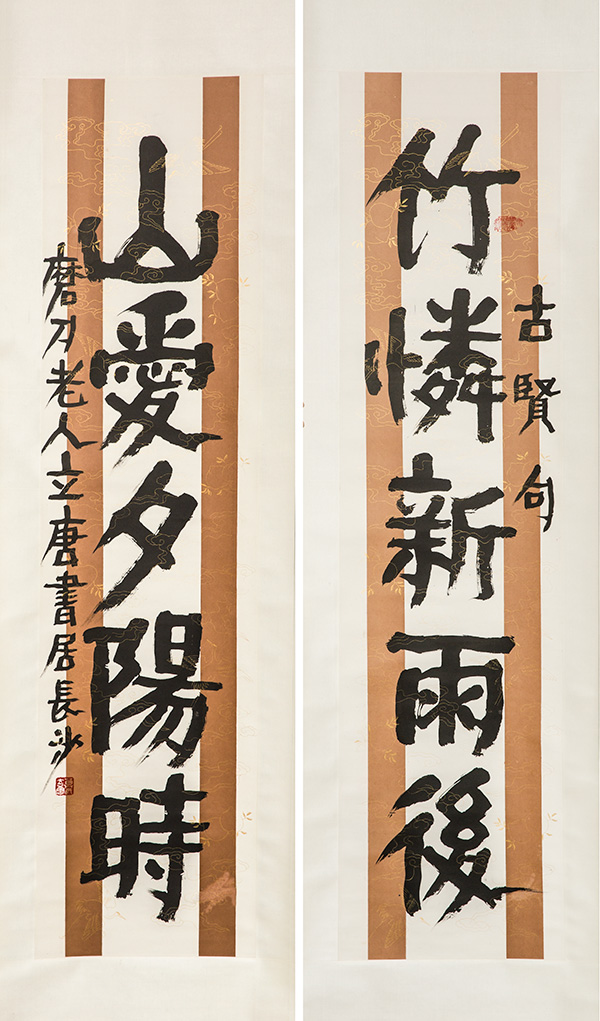 竹憐新雨後
古賢句
山愛夕陽時
磨刀老人立唐書居長沙